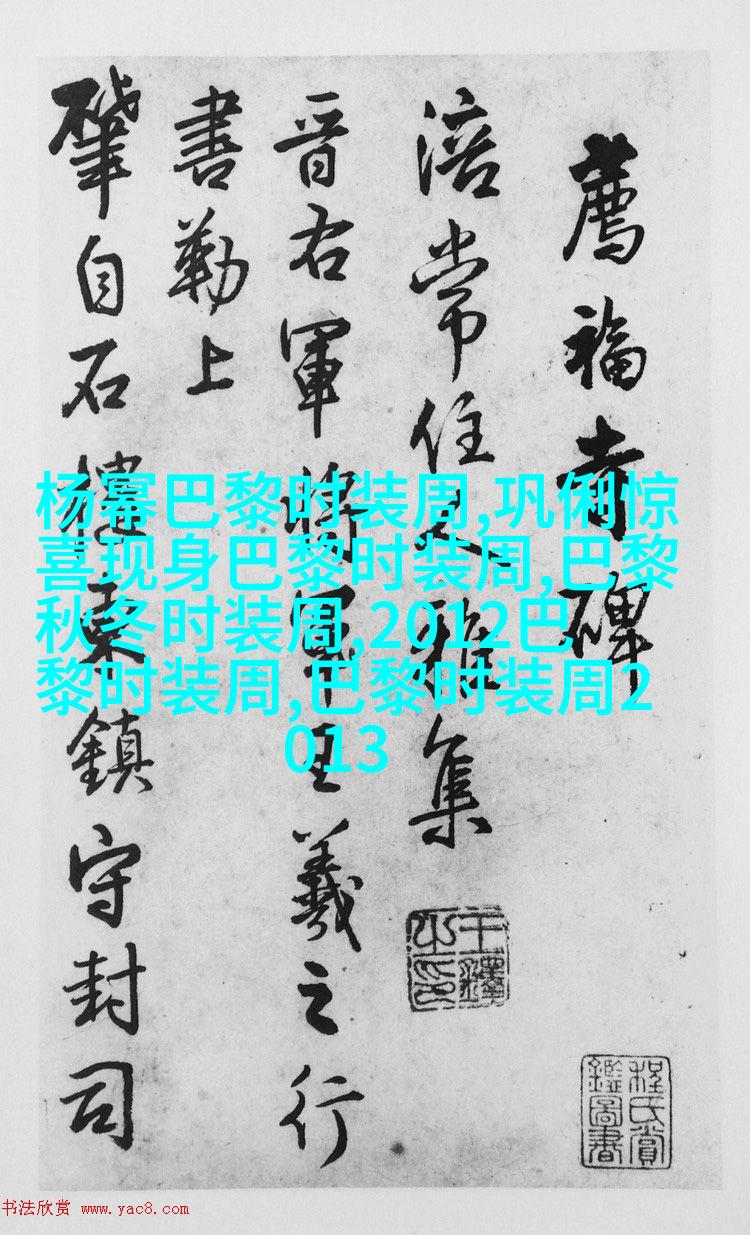 薦福寺碑
涪常住雅集
晋右軍將軍王羲之行
書勒上
肇自石樓東鎮守封司
王鐸之印
程氏賞鑑圖書
杨幂巴黎时装周,巩俐惊
喜现身巴黎时装周,巴黎
秋冬时装周,2012巴
黎时装周,巴黎时装周2
013
书法欣赏 www.yac8.com